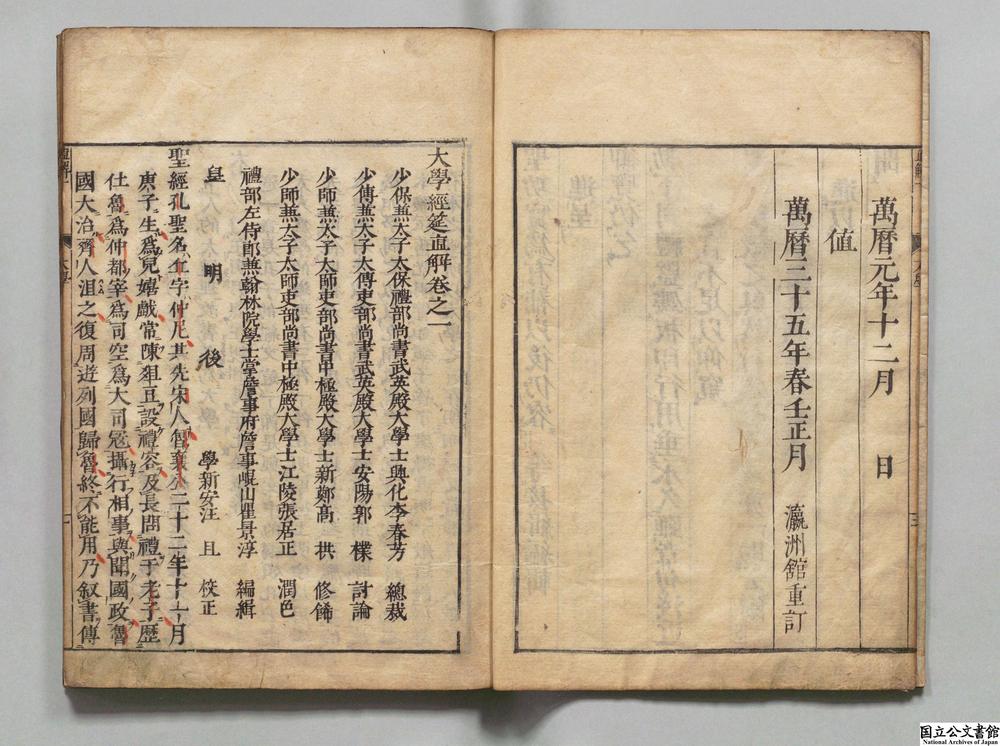 萬曆元年十二月 日
值
萬曆三十五年春王正月 瀛洲館重訂
大學經筵直解卷之一
少保兼太子太保禮部尚書武英殿大學士興化李春芳 總裁
少傅兼太子太傅吏部尚書武英殿大學士安陽郭 樸 討論
少師兼太子太師吏部尚書中極殿大學士新鄭高 拱 修餙
少師兼太子太師吏部尚書中極殿大學士江陵張居正 潤色
禮部左侍郎兼翰林院學士掌詹事府詹事崐山瞿景淳 編緝
皇 明 後 學新安汪 旦 校正
聖經孔聖名丘字仲尼其先宋人魯襄公二十二年十一月
庚子生爲兒嬉戲常陳俎豆設禮容及長問禮于老子歷
仕魯爲仲都宰爲司空爲大司冦攝行相事與聞國政魯
國大治齊人沮之復周遊列國歸魯終不能用乃叙書傳
国立公文書館
National Archives of Japan